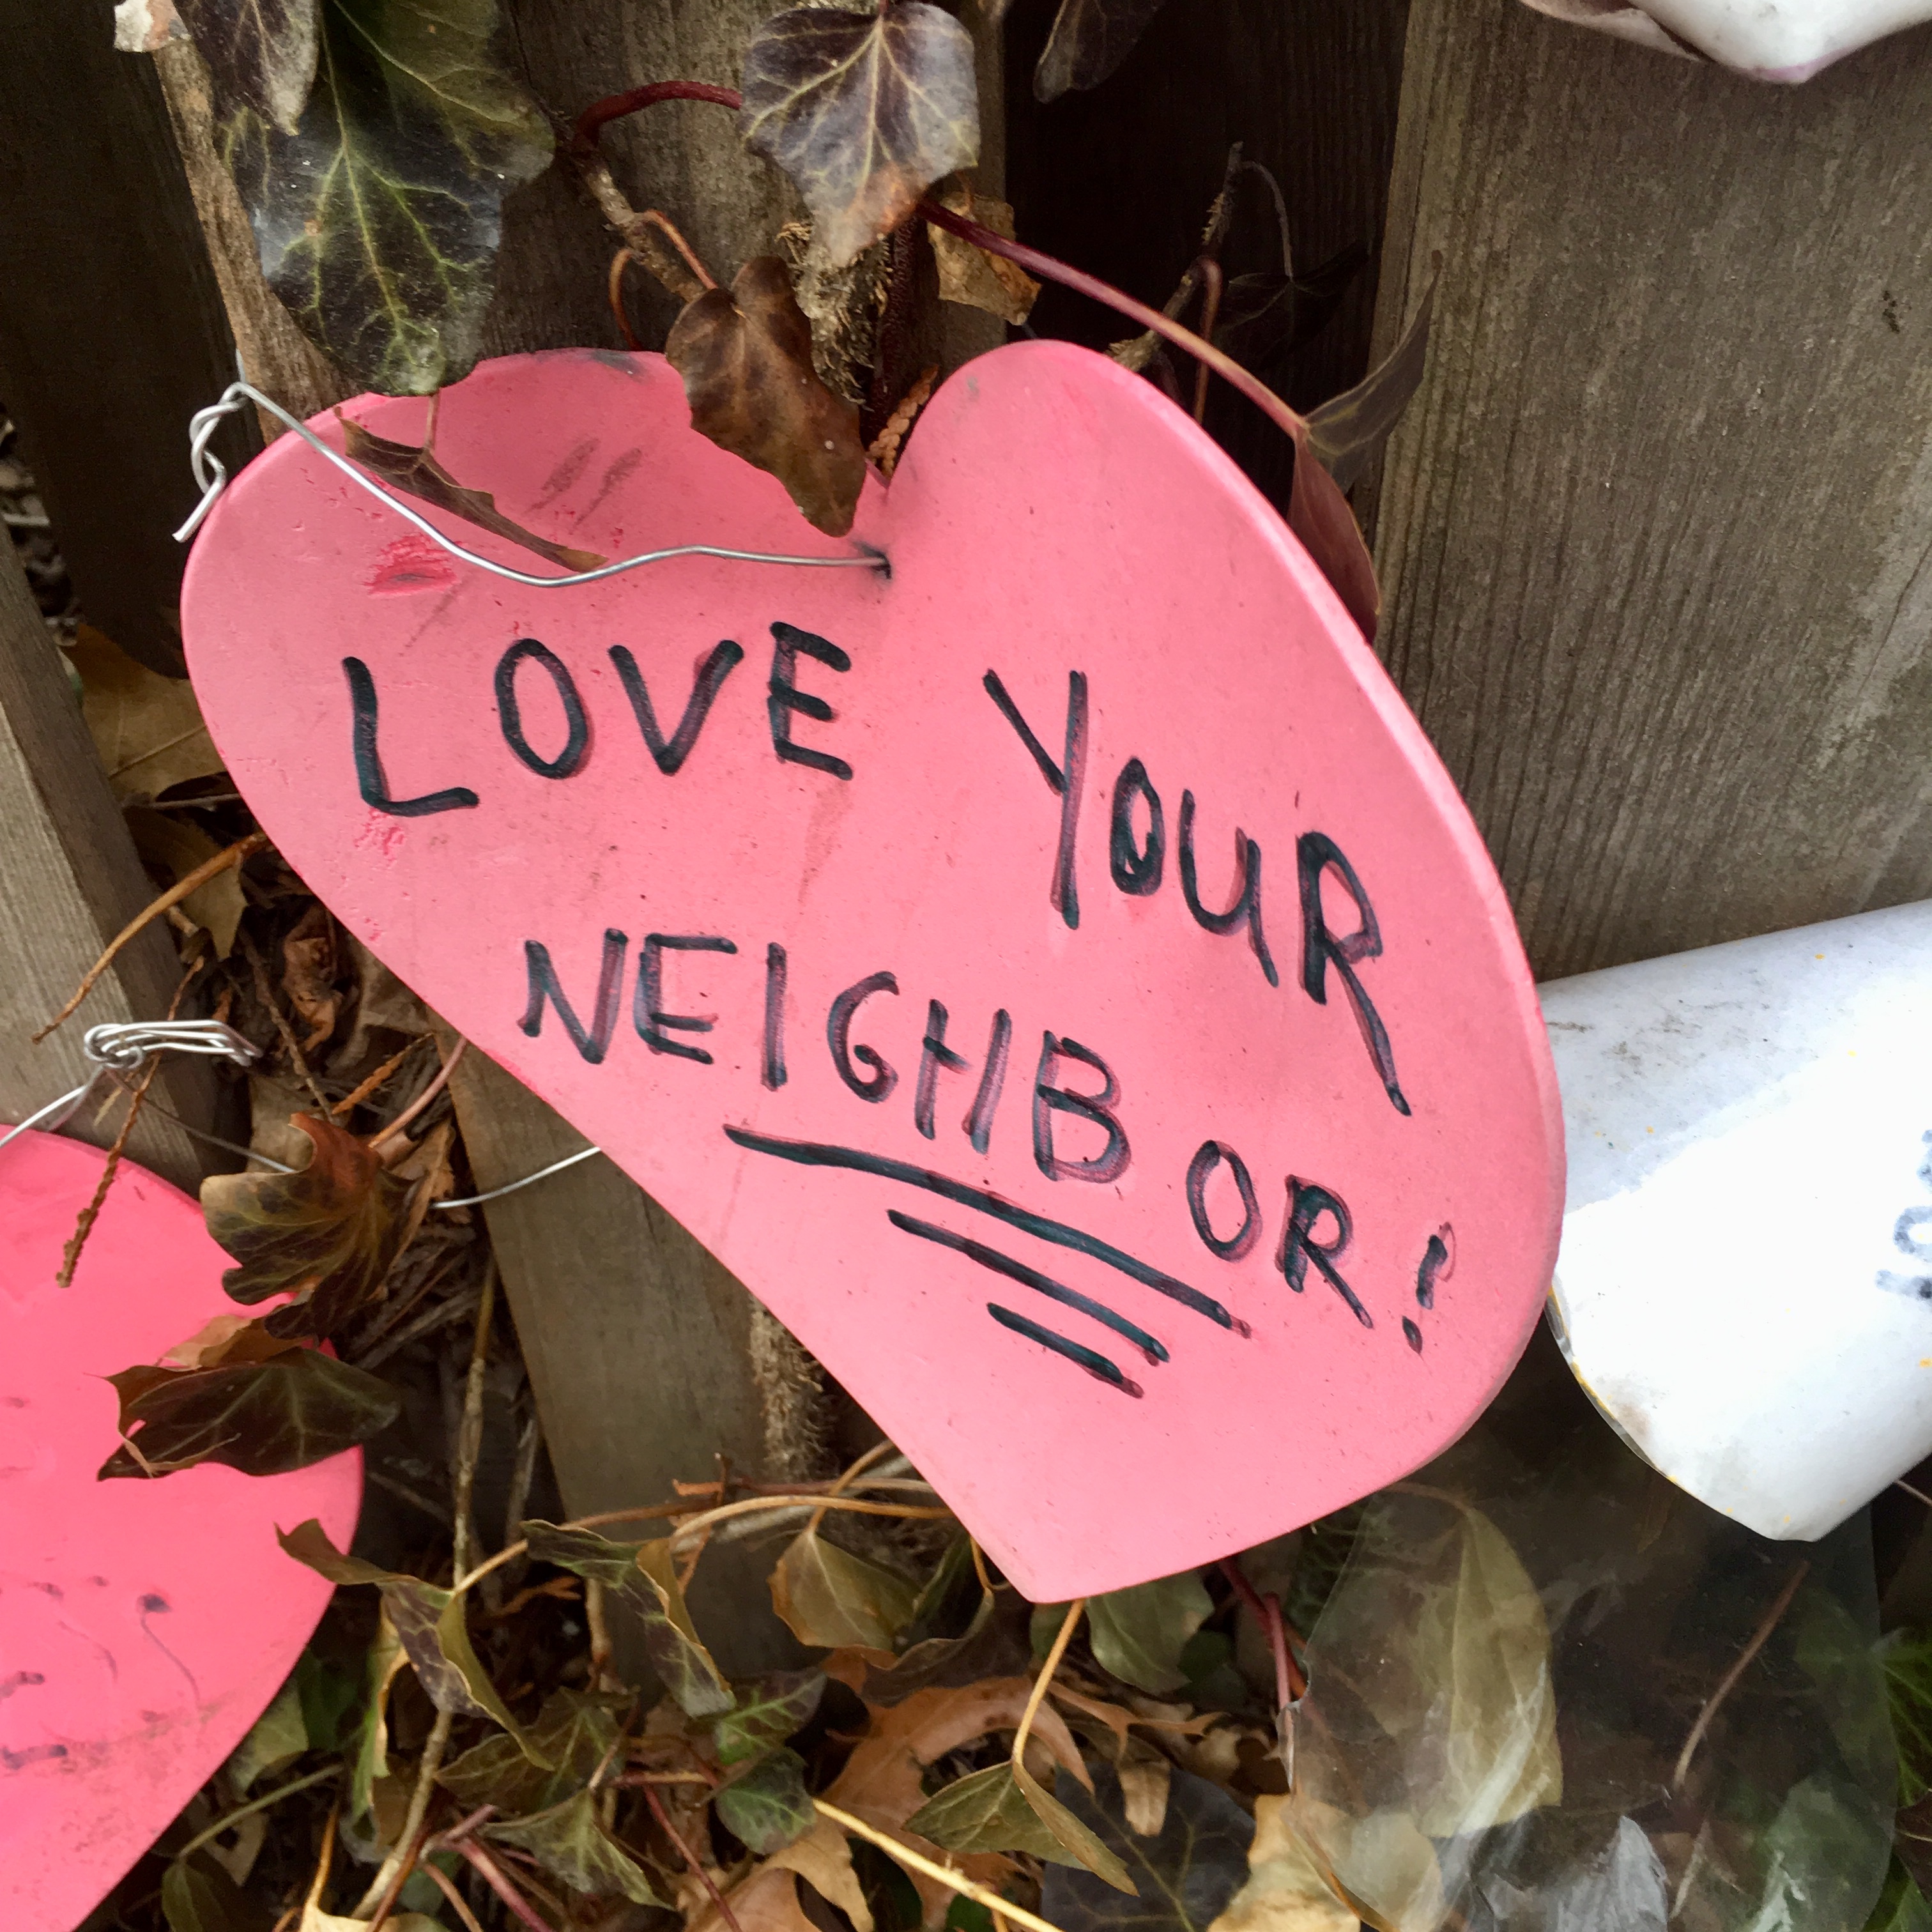 LOVE YOUR
NEIGHBOR!